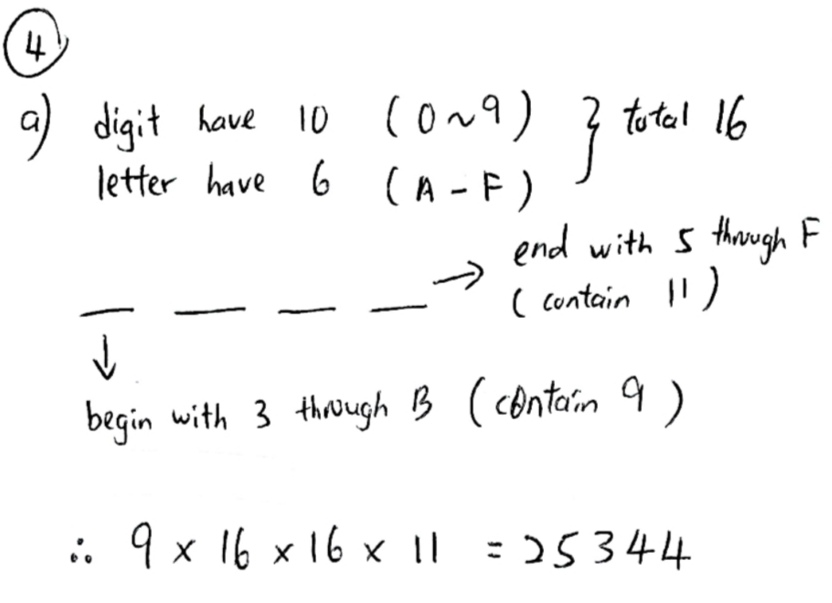 4
a) digit have 10 (0~9) } total 16
letter have 6 (A-F)
end with 5 through F
(contain 11)
begin with 3 through B (contain 9)
∴ 9 × 16 × 16 × 11 = 25344